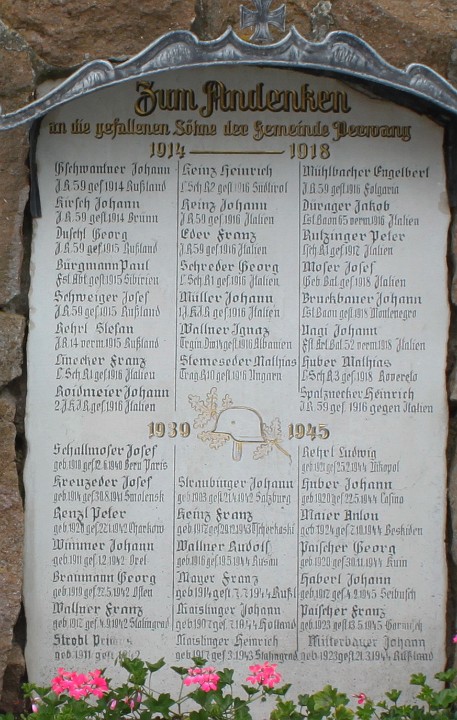 Zum Andenken
an die gefallenen Söhne der Gemeinde Perwang
1914 — 1918
Gschwantner Johann
J.R.59 gef.1914 Rußland
Kirsch Johann
J.R.59 gef.1914 Brünn
Duschl Georg
J.R.59 gef.1915 Rußland
Bürgmann Paul
Fst.Abt.gest.1915 Sibirien
Schweiger Josef
J.R.59 gef.1915 Rußland
Kehrl Stefan
J.R.14 verm.1915 Rußland
Linecker Franz
L.Sch.R.1 gef.1916 Italien
Roidmeier Johann
2.J.K.J.R. gef.1916 Italien
Heinz Heinrich
L'Sch.R.2 gest.1916 Südtirol
Heinz Johann
J.R.59 gef.1916 Italien
Eder Franz
J.R.59 gef.1916 Italien
Schreder Georg
L'Sch.R.1 gef.1916 Italien
Müller Johann
gef.1916 Italien
Wallner Ignaz
gest.1916 Albanien
Stemeseder Mathias
Trag.R.10 gest.1916 Ungarn
Mühlbacher Engelbert
J.R.59 gef.1916 Folgaria
Dürager Jakob
Lst.Baon 65 verm.1916 Italien
Kutzinger Peter
Lsch.R.1 gef.1917 Italien
Moser Josef
Geb.Bat.gef.1918 Italien
Bruckbauer Johann
Lst.Baon gest.1918 Montenegro
Nagi Johann
Fst.Art.Bat.52 verm.1918 Italien
Huber Mathias
L'Sch.R.3 gef.1918 Rovereto
Spatznecker Heinrich
J.R.59 gef.1916 gegen Italien
1939 1945
Schallmoser Josef
geb.1918 gef.12.6.1940 Bern Paris
Kreuzeder Josef
geb.1914 gef.30.8.1941 Smolensk
Renzl Peter
geb.1920 gef.22.1.1942 Charkow
Wimmer Johann
geb.1911 gef.1.2.1942 Orel
Braumann Georg
geb.1919 gef.22.5.1942 Osten
Wallner Franz
geb.1912 gef.4.9.1942 Stalingrad
Strobl
geb.1911 gest. 1942
Straubinger Johann
geb.1903 gest.21.4.1942 Salzburg
Heinz Franz
geb.1917 gef.20.12.1943 Tscherkaski
Wallner Rudolf
geb.1916 gef.19.5.1944 Rusau
Mayer Franz
geb.1914 gest.7.7.1944 Rußl
Maislinger Johann
geb.1907 gef.7.10.1944 Holland
Maislinger Heinrich
geb.1917 gef.3.1943 Stalingrad
Kehrl Ludwig
geb.1921 gef.25.2.1944 Nikopol
Huber Johann
geb.1920 gef.22.5.1944 Casino
Maier Anton
geb.1924 gef.7.10.1944 Beskiden
Paischer Georg
geb.1920 gef.30.11.1944
Haberl Johann
geb.1912 gef.4.2.1945 Seibusch
Paischer Franz
geb.1923 gest.13.5.1945 Garmisch
Mitterbauer Johann
geb.1923 gest.21.3.1944 Rußland